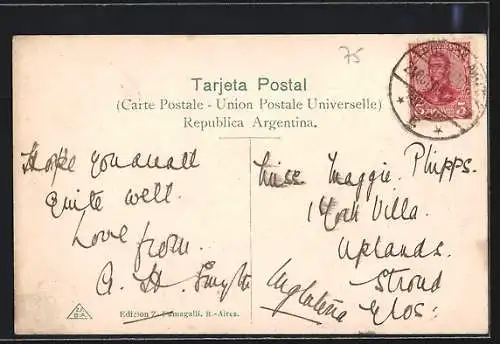 75
Tarjeta Postal
(Carte Postale - Union Postale Universelle)
Republica Argentina.
5 5
Hope you are all
quite well.
Love from.
A. H. Smyth
Miss Maggie. Phipps.
1 York Villa.
Uplands.
Stroud
Glos:
Inglaterra
Edicion Z. Fumagalli, B.-Aires.